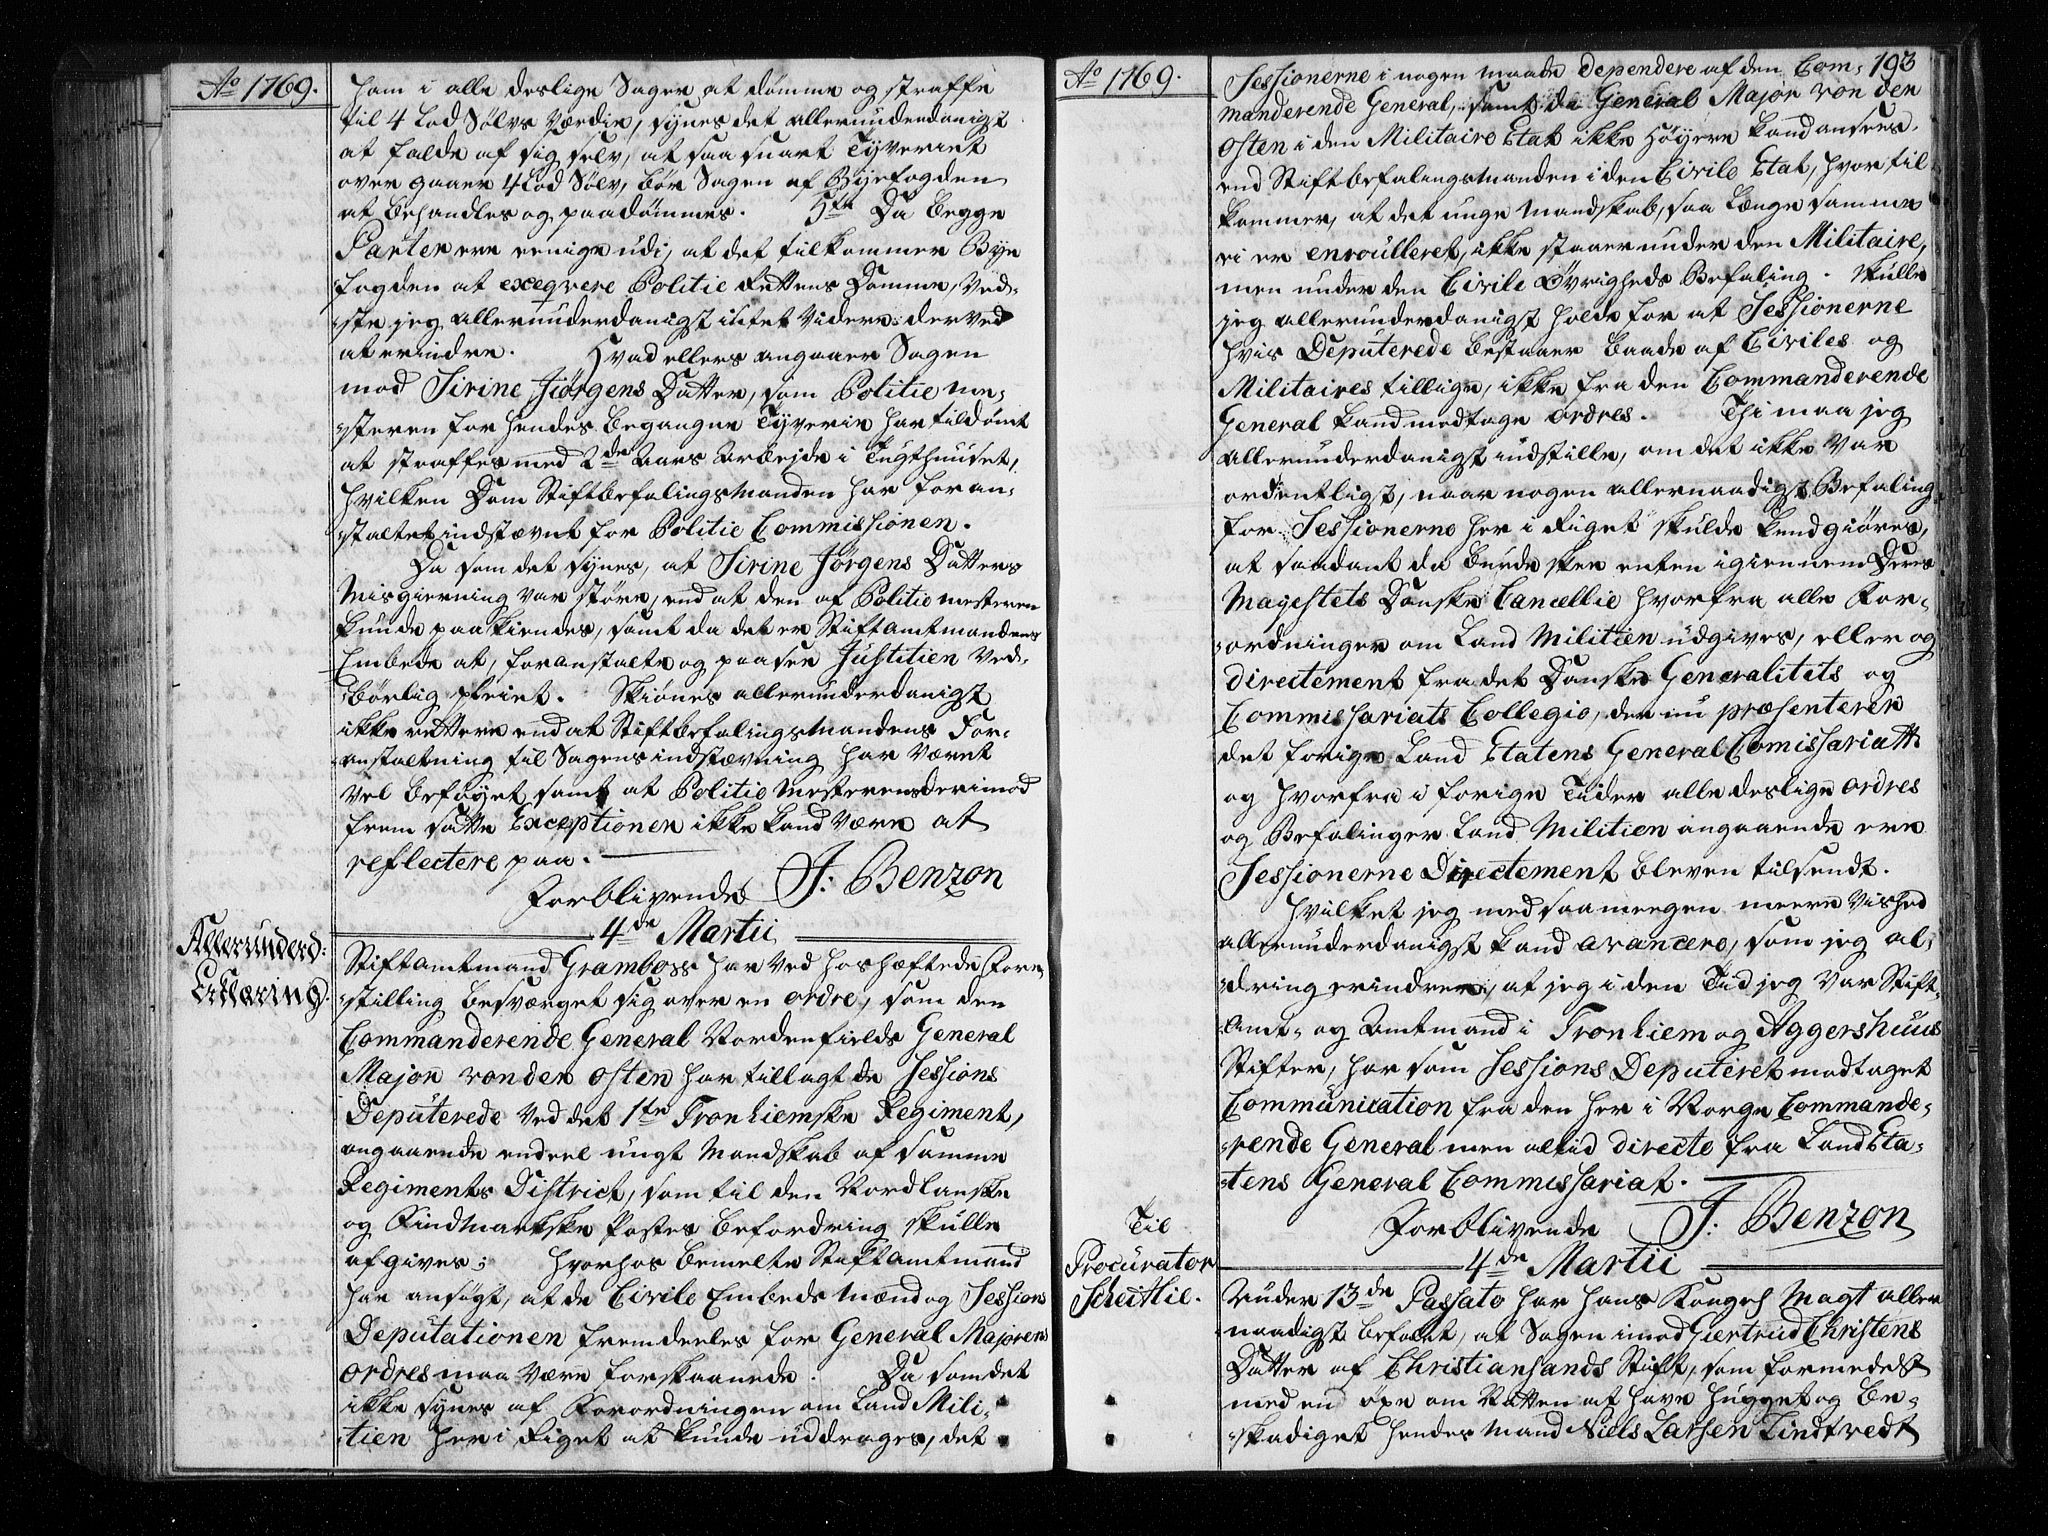 Ao 1769.
ham i alle deslige Sager at dømme og straffe
til 4 Lod Sølvs Værdie, synes det allerunderdanigst
at falde af sig selv, at saa snart Tyveriet
over gaaer 4 Lod Sølv, bør Sagen af Byefogden
at behandles og paadømmes. 5te Da begge
Parter ere eenige udi, at det tilkommer Bye
fogden at exeqvere Politie Rettens Domme, Ved-
ste jeg allerunderdanigst intet Videre derved
at erindre. Hvad ellers angaaer Sagen
mod Sirine Jørgens Datter, som Politie me-
steren for hendes begangne Tyverie har tildømt
at straffes med 2de Aars Arbejde i Tugthuuset,
hvilken Dom Stiftbefalingsmanden har foran-
staltet indstævnt for Politie Commissionen.
Da som det synes, at Sirine Jørgens Datters
Misgierning var større, end at den af Politie mesteren
kunde paakiendes, samt da det er Stiftamtmandens
Embede at, foranstalte og paasee Justitien Ved-
børlig pleiet. Skiønnes allerunderdanigst
ikke rettere end at Stiftbefalingsmandens For-
anstaltning til Sagens indstævning har været
vel beføyet, samt at Politie Mesterens derimod
frem satte Exceptionen ikke kand være at
reflectere paa.
Forblivende J: Benzon
4de Martii
Allerunderd:
Erklaring.
Stiftamtmand Gramboss har ved hoshæftede Fore-
stilling besværget sig over en ordre, som den
Commanderende General Nordenfields General
Major von der Osten har tillagt de Sessions
Deputerede ved det 1te Tronhiemske Regiment,
angaaende endeel ungt Mandskab af samme
Regiments District, som til den Nordlanske
og Findmarkske Postes befordring skulle
afgives; hvorhos bemelte Stiftamtmand
har ansøgt, at de Civile Embeds Mænd og Sessions
Deputationen fremdeeles for General Majorens
ordres maa være forskaanede. Da som det
ikke synes af Forordningen om Land Mili-
tien her i Riget at kunde uddrages, det
Ao 1769.
193
Sessionerne i nogen maade dependere af den Com-
manderende General, samt da General Major von den
Osten i den Militaire Etat ikke Høyere kand ansees,
end Stiftbefalingsmanden i den Civile Etat, hvortil
kommer, at det unge Mandskab, saa længe samme
ei er enroulleret, ikke staaer under den Militaire,
men under den Civile Øvrigheds Befaling. Skulle
jeg allerunderdanigst holde for at Sessionerne
hvis Deputerede bestaaer baade af Civiles og
Militaires tillige, ikke fra den Commanderende
General kand modtage ordres. Thi maa jeg
allerunderdanigst indstille, om det ikke var
ordentligt, naar nogen allernaadigst Befaling
for Sessionerne her i Riget skulde kundgiøres,
at saadant da burde skee enten igiennem Deres
Mayestets Danske Cancellie hvorfra alle For-
ordninger om Land Militien udgives, eller og
directement fra det Danske Generalitets og
Commissariats Collegio, der nu præsenterer
det forige Land Etatens General Comissariatt
og hvorfra i forige Tider alle deslige ordres
og Befalinger Land Militien angaaende ere
Sessionerne Directement bleven tilsendt.
Hvilket jeg med saa meegen meere Vished
allerunderdanigst kand avancere, som jeg al-
drig erindrer, at jeg i den Tid jeg var Stift-
Amt- og Amtmand i Tronhiem og Aggershuus
Stifter, har som Sessions Deputeret modtaget
Communication fra den her i Norge Commande-
rende General men altid directe fra Land Eta-
tens General Commissariat.
Forblivende J: Benzon
4de Martii
Til
Procurator
Scheitlie.
Under 13de Passato har Hans Kongel Magt aller
naadigst befalet, at Sagen imod Giertrud Christens
Datter af Christiansands Stift, som formedelst
med en øxe om Natten at have hugget og be-
skadiget hendes Mand Niels Larsen Lindtvedt